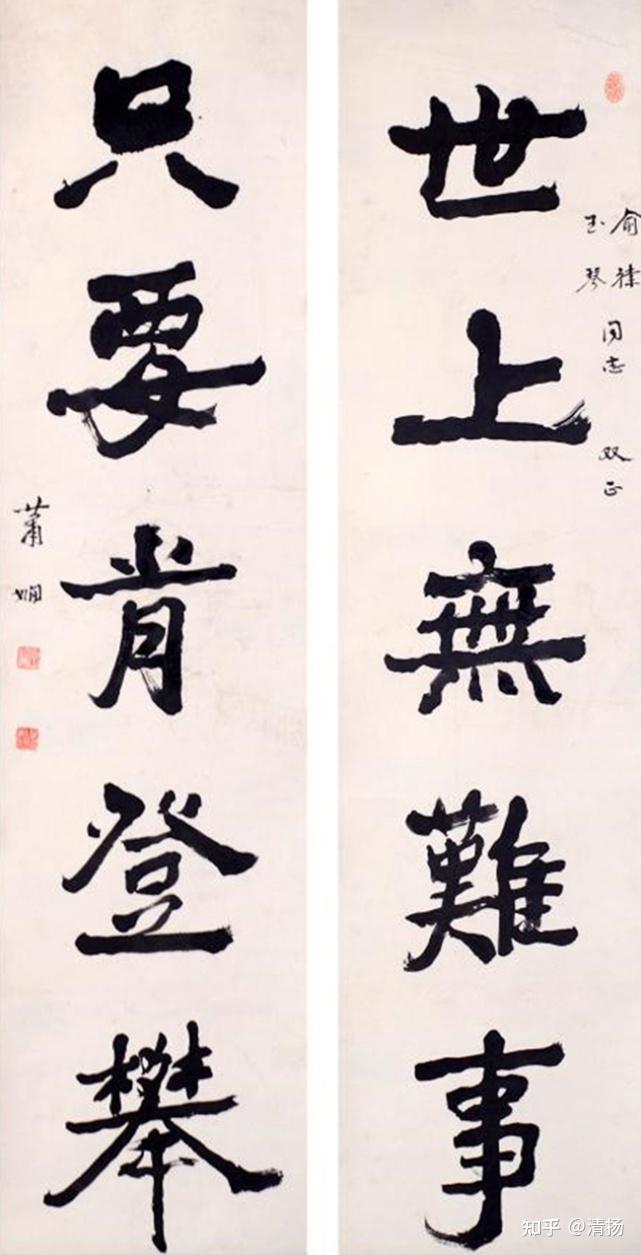 世上無難事
俞律
玉琴
同志
双正
只要肯登攀
蕭嫻
知乎 @清扬